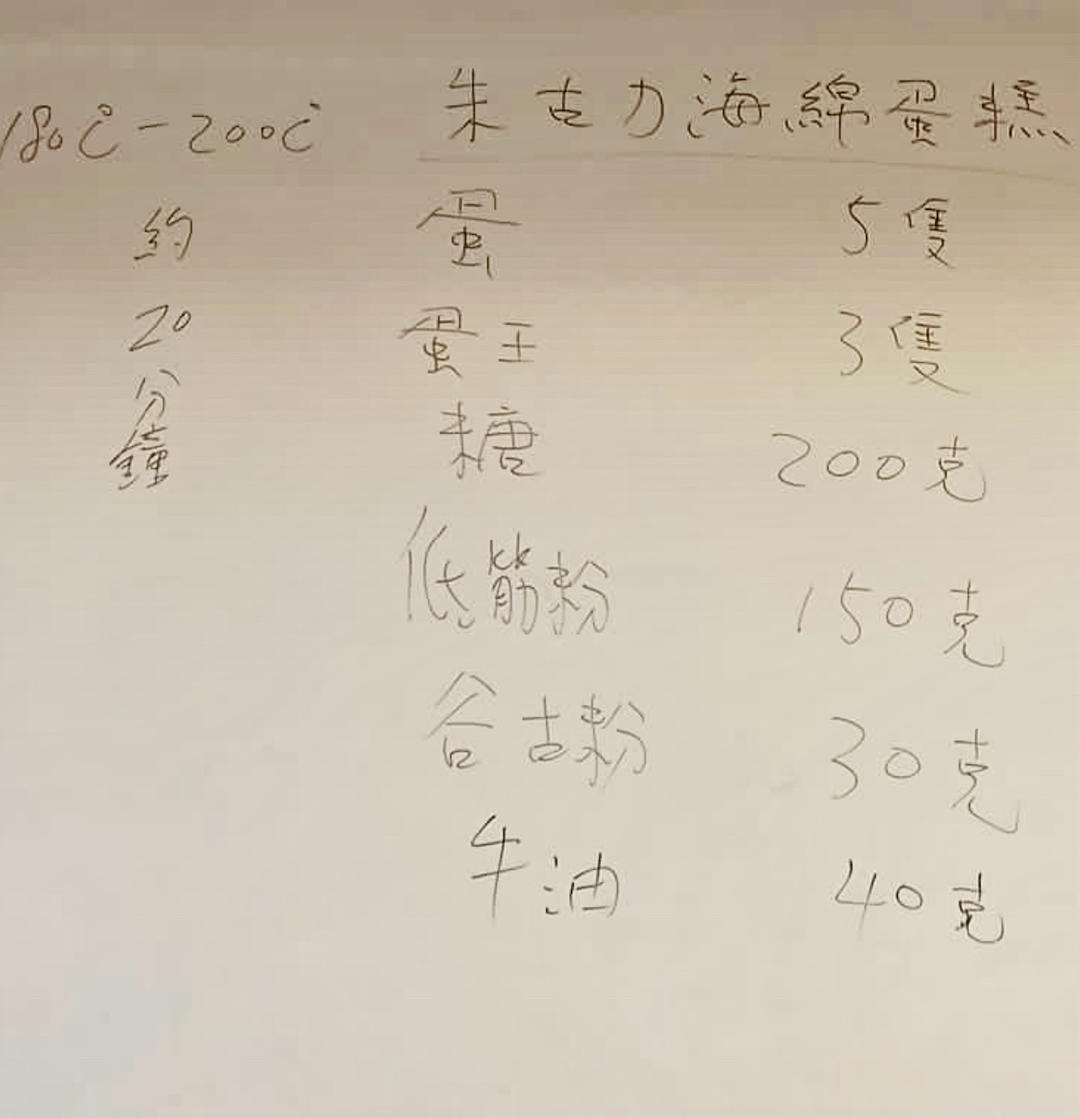 朱古力海綿蛋糕
180℃-200℃
約
20
分
鐘
蛋 5隻
蛋王 3隻
糖 200克
低筋粉 150克
谷古粉 30克
牛油 40克